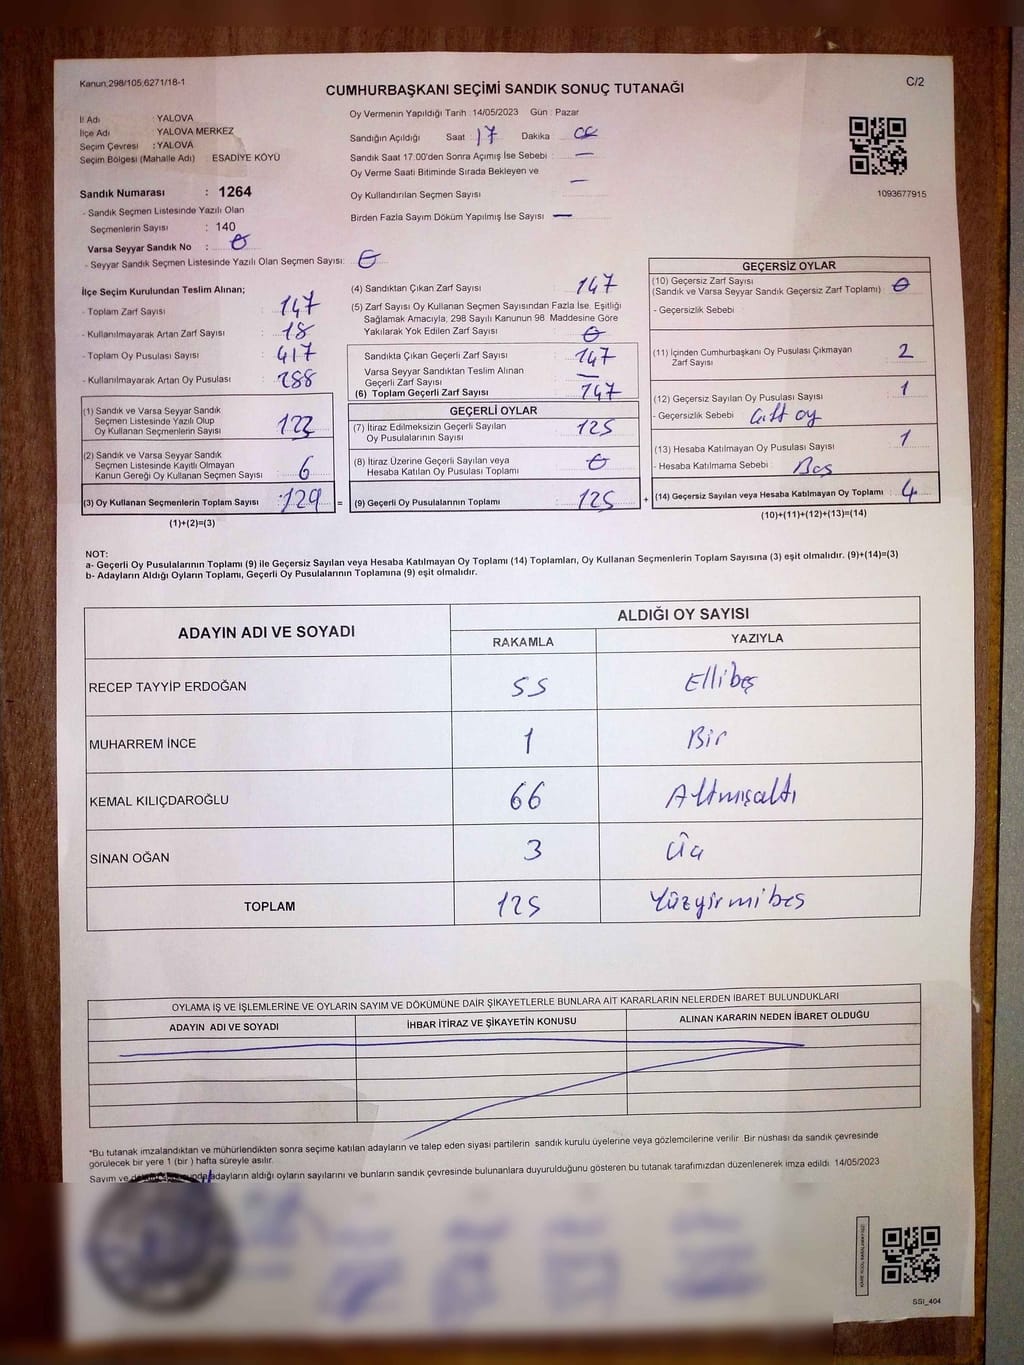 Kanun:298/105;6271/18-1
C/2
CUMHURBAŞKANI SEÇİMİ SANDIK SONUÇ TUTANAĞI
İl Adı : YALOVA
İlçe Adı : YALOVA MERKEZ
Seçim Çevresi : YALOVA
Seçim Bölgesi (Mahalle Adı) ESADİYE KÖYÜ
Sandık Numarası : 1264
- Sandık Seçmen Listesinde Yazılı Olan
Seçmenlerin Sayısı : 140
Varsa Seyyar Sandık No : 0
- Seyyar Sandık Seçmen Listesinde Yazılı Olan Seçmen Sayısı: 0
Oy Vermenin Yapıldığı Tarih : 14/05/2023 Gün : Pazar
Sandığın Açıldığı Saat 17 Dakika
Sandık Saat 17.00'den Sonra Açımış İse Sebebi : —
Oy Verme Saati Bitiminde Sırada Bekleyen ve
Oy Kullandırılan Seçmen Sayısı —
Birden Fazla Sayım Döküm Yapılmış İse Sayısı —
1093677915
İlçe Seçim Kurulundan Teslim Alınan;
- Toplam Zarf Sayısı : 147
- Kullanılmayarak Artan Zarf Sayısı : 18
- Toplam Oy Pusulası Sayısı : 417
- Kullanılmayarak Artan Oy Pusulası : 288
(1) Sandık ve Varsa Seyyar Sandık
Seçmen Listesinde Yazılı Olup
Oy Kullanan Seçmenlerin Sayısı : 123
(2) Sandık ve Varsa Seyyar Sandık
Seçmen Listesinde Kayıtlı Olmayan
Kanun Gereği Oy Kullanan Seçmen Sayısı : 6
(3) Oy Kullanan Seçmenlerin Toplam Sayısı : 129 =
(1)+(2)=(3)
(4) Sandıktan Çıkan Zarf Sayısı : 147
(5) Zarf Sayısı Oy Kullanan Seçmen Sayısından Fazla İse, Eşitliği
Sağlamak Amacıyla; 298 Sayılı Kanunun 98. Maddesine Göre
Yakılarak Yok Edilen Zarf Sayısı : 0
Sandıkta Çıkan Geçerli Zarf Sayısı : 147
Varsa Seyyar Sandıktan Teslim Alınan
Geçerli Zarf Sayısı : —
(6) Toplam Geçerli Zarf Sayısı : 147
GEÇERLİ OYLAR
(7) İtiraz Edilmeksizin Geçerli Sayılan
Oy Pusulalarının Sayısı : 125
(8) İtiraz Üzerine Geçerli Sayılan veya
Hesaba Katılan Oy Pusulası Toplamı : 0
(9) Geçerli Oy Pusulalarının Toplamı : 125 +
GEÇERSİZ OYLAR
(10) Geçersiz Zarf Sayısı
(Sandık ve Varsa Seyyar Sandık Geçersiz Zarf Toplamı) : 0
- Geçersizlik Sebebi
(11) İçinden Cumhurbaşkanı Oy Pusulası Çıkmayan
Zarf Sayısı : 2
(12) Geçersiz Sayılan Oy Pusulası Sayısı : 1
- Geçersizlik Sebebi Çift oy
(13) Hesaba Katılmayan Oy Pusulası Sayısı : 1
- Hesaba Katılmama Sebebi : Boş
(14) Geçersiz Sayılan veya Hesaba Katılmayan Oy Toplamı : 4
(10)+(11)+(12)+(13)=(14)
NOT:
a- Geçerli Oy Pusulalarının Toplamı (9) ile Geçersiz Sayılan veya Hesaba Katılmayan Oy Toplamı (14) Toplamları, Oy Kullanan Seçmenlerin Toplam Sayısına (3) eşit olmalıdır. (9)+(14)=(3)
b- Adayların Aldığı Oyların Toplamı, Geçerli Oy Pusulalarının Toplamına (9) eşit olmalıdır.
ADAYIN ADI VE SOYADI
ALDIĞI OY SAYISI
RAKAMLA YAZIYLA
RECEP TAYYİP ERDOĞAN 55 Ellibeş
MUHARREM İNCE 1 Bir
KEMAL KILIÇDAROĞLU 66 Altmışaltı
SİNAN OĞAN 3 Üç
TOPLAM 125 Yüzyirmibes
OYLAMA İŞ VE İŞLEMLERİNE VE OYLARIN SAYIM VE DÖKÜMÜNE DAİR ŞİKAYETLERLE BUNLARA AİT KARARLARIN NELERDEN İBARET BULUNDUKLARI
ADAYIN ADI VE SOYADI İHBAR İTİRAZ VE ŞİKAYETİN KONUSU ALINAN KARARIN NEDEN İBARET OLDUĞU
*Bu tutanak imzalandıktan ve mühürlendikten sonra seçime katılan adayların ve talep eden siyasi partilerin sandık kurulu üyelerine veya gözlemcilerine verilir. Bir nüshası da sandık çevresinde
görülecek bir yere 1 (bir ) hafta süreyle asılır.
Sayım ve adayların aldığı oyların sayılarını ve bunların sandık çevresinde bulunanlara duyurulduğunu gösteren bu tutanak tarafımızdan düzenlenerek imza edildi. 14/05/2023
SSI_404